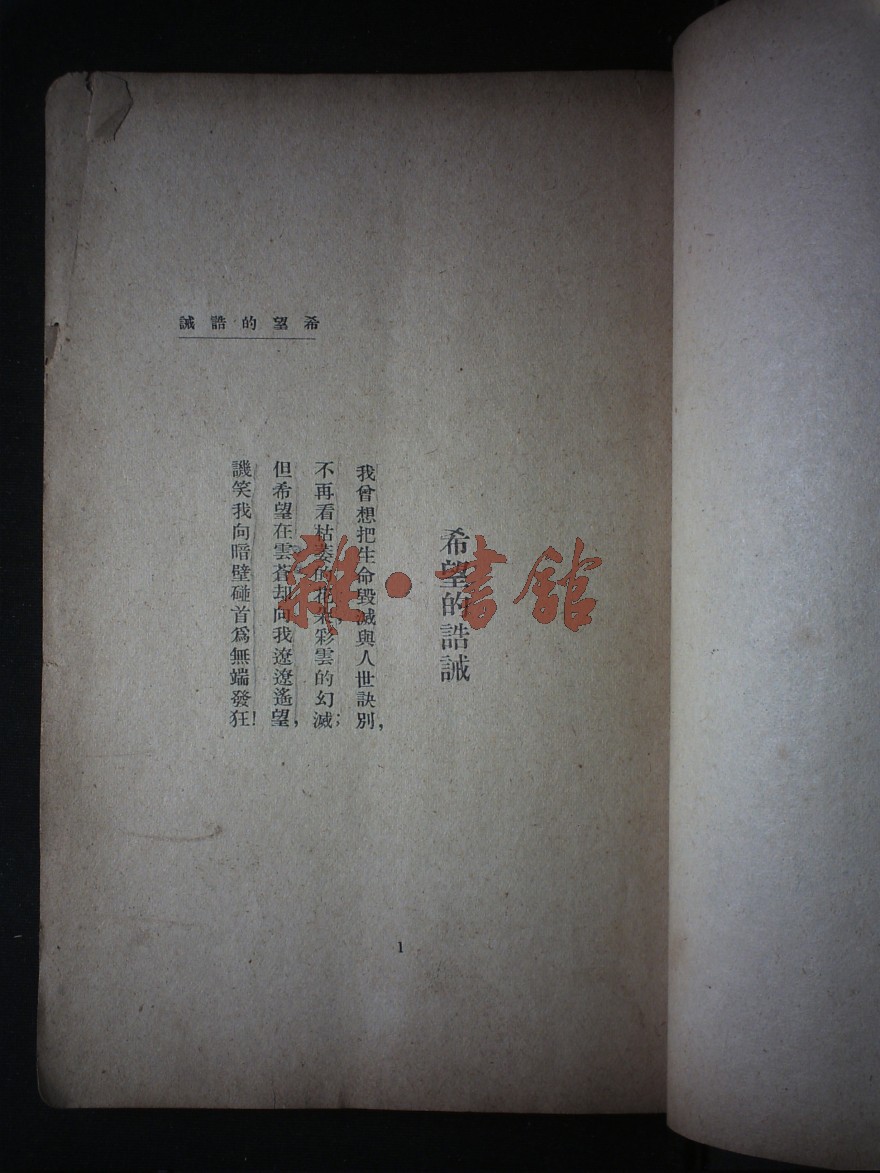 希望的誥誡
希望的誥誡
我曾想把生命毀滅與人世訣別,
不再看枯萎的花朵彩雲的幻滅;
但希望在雲蒼却向我遼遼遙望,
譏笑我向暗壁碰首爲無端發狂!
1
雜·書館